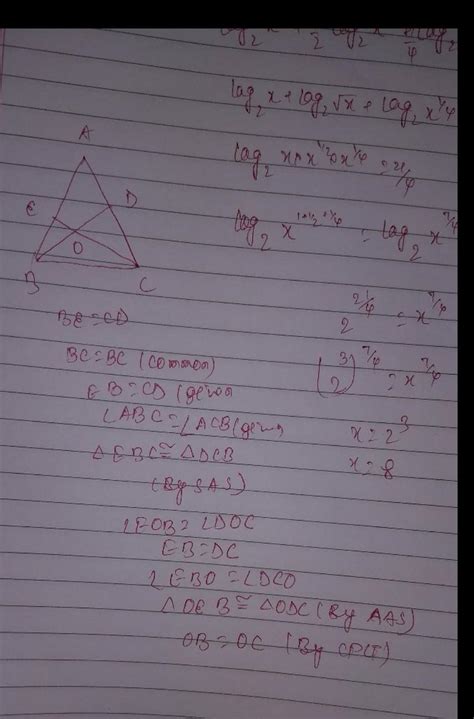 log₂ x + log₂ √x + log₂ x^1/4
log₂ x × x^1/2 × x^1/4 = 21/4
log₂ x^1+1/2+1/4 = log₂ x^7/4
2^21/4 = x^7/4
(2^3)^7/4 = x^7/4
x = 2^3
x = 8
A
E
D
O
B
C
BE = CD
BC = BC (common)
EB = CD (given
∠ABC = ∠ACB (given
△EBC ≅ △DCB
(By SAS)
∠EOB = ∠DOC
EB = DC
∠EBO = ∠DCO
△OEB ≅ △ODC (By AAS)
OB = OC (By CPCT)